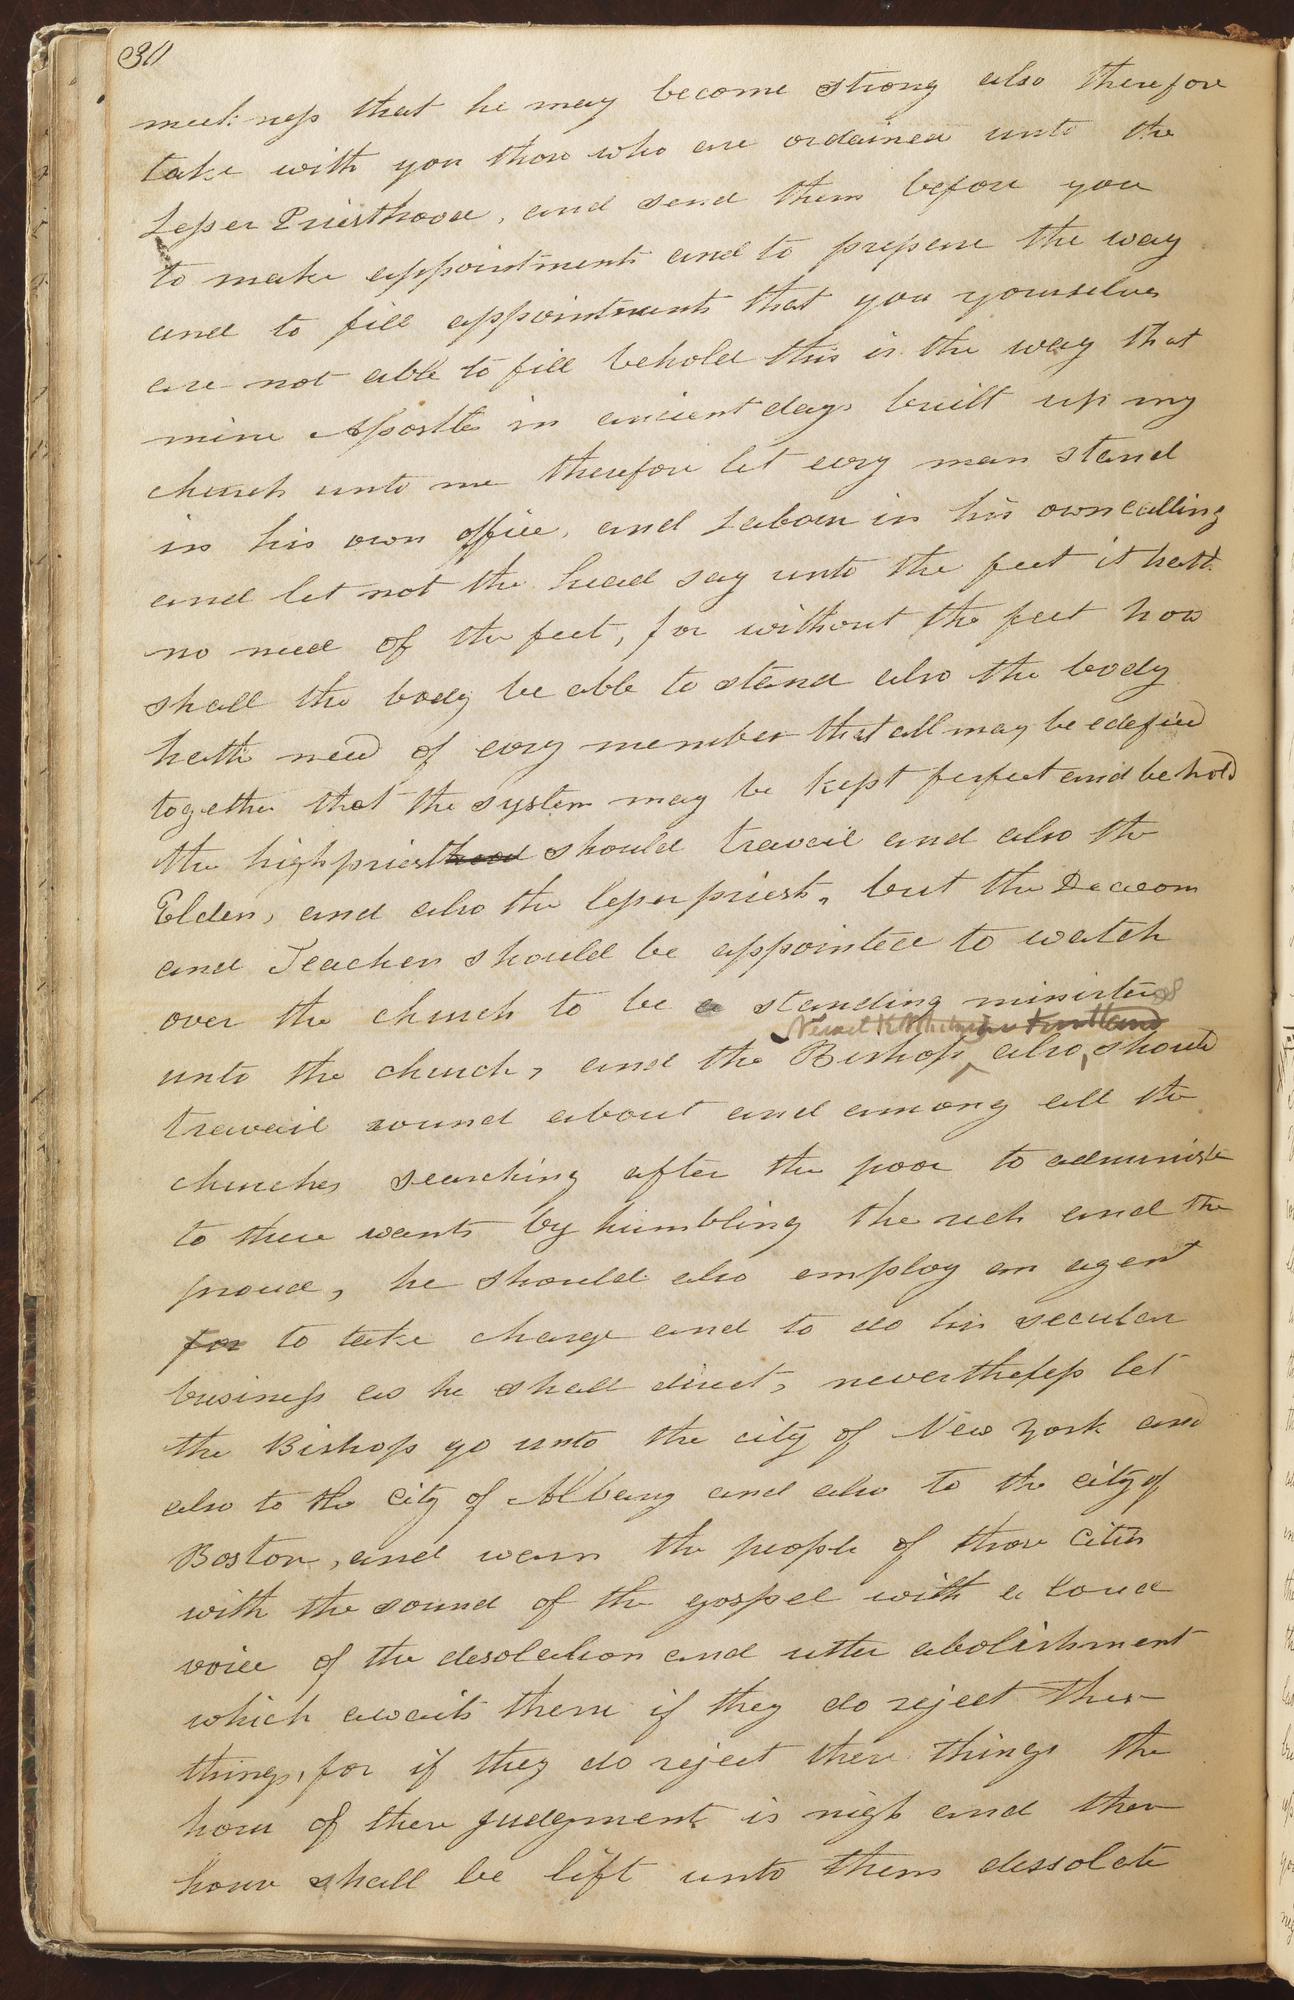 30
meekness that he may become strong also therefore
take with you those who are ordained unto the
Lesser Priesthood, and send them before you
to make appointments and to prepare the way
and to fill appointments that you yourselves
are not able to fill behold this is the way that
mine Apostles in ancient days built up my
church unto me therefore let evry man stand
in his own office, and Labour in his own calling
and let not the head say unto the feet it hath
no need of the feet, for without the feet how
shall the body be able to stand also the body
hath need of evry member that all may be edefied
together that the system may be kept perfect and behold
the highpriesthood should travail and also the
Elders, and also the lesser priests, but the Deacons
and Teachers should be appointed to watch
over the church to be a standing ministers
Newel K Whitney in Kirtland
unto the church, and the Bishop also, should
travail round about and among all the
churches searching after the poor to administer
to there wants by humbling the rich and the
proud, he should also employ an agent
for to take charge and to do his secular
business as he shall direct, nevertheless let
the Bishop go unto the city of New York and
also to the city of Albany and also to the city of
Boston, and warn the people of those Cities
with the sound of the gospel with a loud
voice of the desolation and utter abolishment
which awaits them if they do reject these
things, for if they do reject these things the
hour of there judgment is nigh and there
house shall be lift unto them dessolate